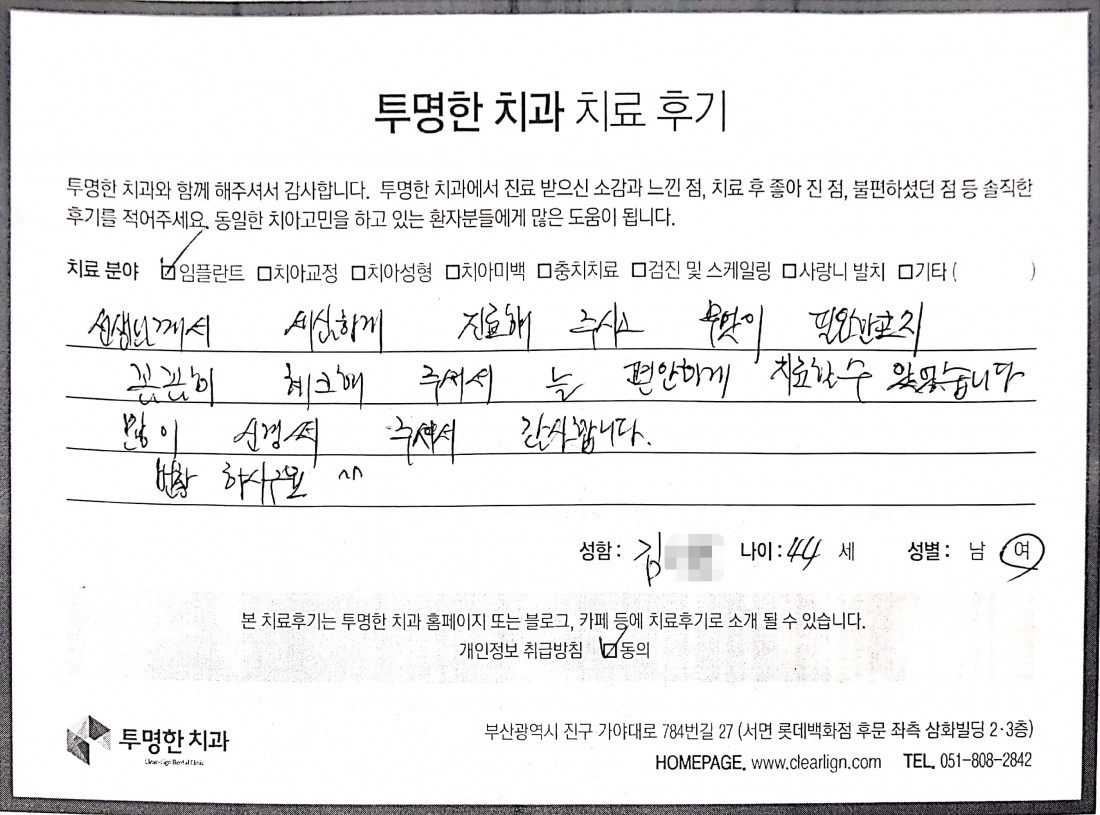 투명한 치과 치료 후기
투명한 치과와 함께 해주셔서 감사합니다. 투명한 치과에서 진료 받으신 소감과 느낀 점, 치료 후 좋아 진 점, 불편하셨던 점 등 솔직한
후기를 적어주세요. 동일한 치아고민을 하고 있는 환자분들에게 많은 도움이 됩니다.
치료 분야 ☑임플란트 □치아교정 □치아성형 □치아미백 □충치치료 □검진 및 스케일링 □사랑니 발치 □기타 ( )
선생님께서 세심하게 진료해 주시고 무엇이 필요한르지
꼼꼼히 체크해 주셔서 늘 편안하게 치료할수 있었습니다
많이 신경써 주셔서 감사합니다.
번창 하시구요 ^^
성함 : 김 나이 : 44 세 성별 : 남 여
본 치료후기는 투명한 치과 홈페이지 또는 블로그, 카페 등에 치료후기로 소개 될 수 있습니다.
개인정보 취급방침 ☑동의
투명한 치과
Clear-Lign Dental Clinic
부산광역시 진구 가야대로 784번길 27 (서면 롯데백화점 후문 좌측 삼화빌딩 2·3층)
HOMEPAGE. www.clearlign.com TEL. 051-808-2842